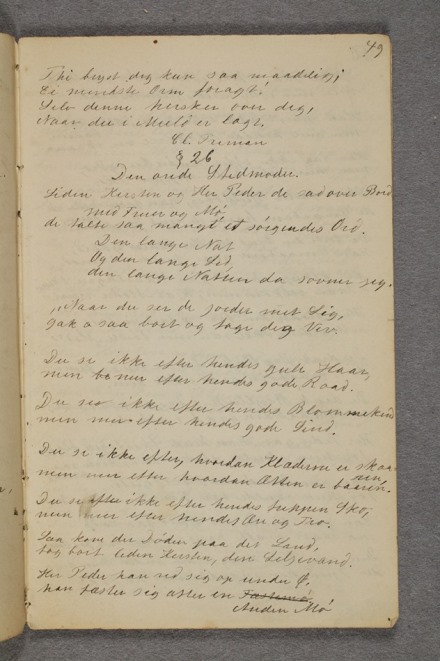 49
Thi bryst dig kun saa maadelig;
Ei mindste Orm foragt!
Selv denne hersker over dig,
Naar du i Muld er lagt.
Cl. Friman
§ 26
Den onde Stedmoder.
Liden Kersten og Her Peder de sad over Bord
med Fruer og Mø,
de talte saa mangt et sørgendes Ord.
Den lange Nat
Og den lange Tid
den lange Natten da sover jeg.
„Naar du ser de Jorder met Lig,
gak o saa bort og tage dig Viv.
Du se ikke efter hendes gule Haar,
men mer efter hendes gode Raad.
Du se ikke efter hendes Blommekind
men mer efter hendes gode Sind.
Du se ikke efter, hvordan Klæderne er skaaren,
men mer efter hvordan Ætten er baaren.
Du se ikke efter hendes Sko,
men mer efter hendes Ære og Tro.
Saa kom der Døden paa det Land,
tog bort liden Kersten, den Liljevand.
Her Peder han red sig op under Ø,
han fæster sig atter en Fæstemø,
Anden Mø